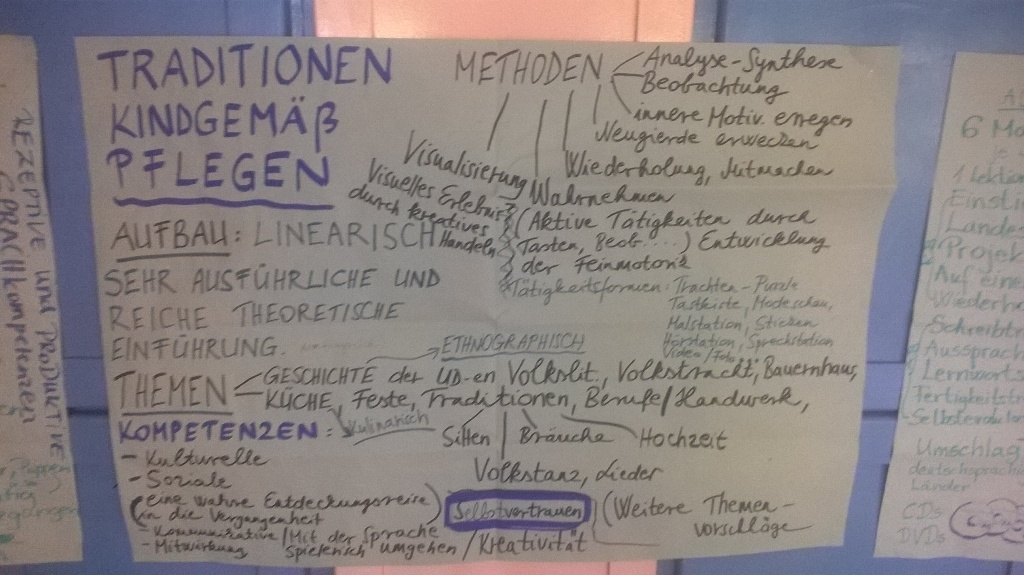 TRADITIONEN
KINDGEMÄß
PFLEGEN
METHODEN
Analyse-Synthese
Beobachtung
innere Motiv. erregen
Neugierde erwecken
Wiederholung, Mitmachen
Visualisierung
Visuelles Erlebnis
durch kreatives
Handeln
Wahrnehmen
(Aktive Tätigkeiten durch
Tasten, Beob....) Entwicklung
der Feinmotorik
Tätigkeitsformen: Trachten-Puzzle
Tastkiste, Modeschau,
Malstation, Sticken
Hörstation, Sprechstation
Video/Foto
AUFBAU: LINEARISCH
SEHR AUSFÜHRLICHE UND
REICHE THEORETISCHE
EINFÜHRUNG.
ETHNOGRAPHISCH
THEMEN
GESCHICHTE der UD-en Volkslit, Volkstracht, Bauernhaus,
KÜCHE, Feste, Traditionen, Berufe/Handwerk,
Kulinarisch
Sitten
Bräuche
Hochzeit
Volkstanz, Lieder
KOMPETENZEN:
- Kulturelle
- Soziale
(eine wahre Entdeckungsreise
in die Vergangenheit)
- Kommunikative/Mit der Sprache
spielerisch umgehen/Kreativität
- Mitwirkung
Selbstvertrauen
(Weitere Themen-
vorschläge
REZEPTIVE und PRODUKTIVE
SPRACHkompetenzen
6 Mo
1 Lektion
Einsti
Lande
Projek
Auf eine
Wiederho
Schreibtr
Aussprach
Lernworts
Fertigkeitstr
Umschlag
deutschsprachi
Länder
CDs
DVDs